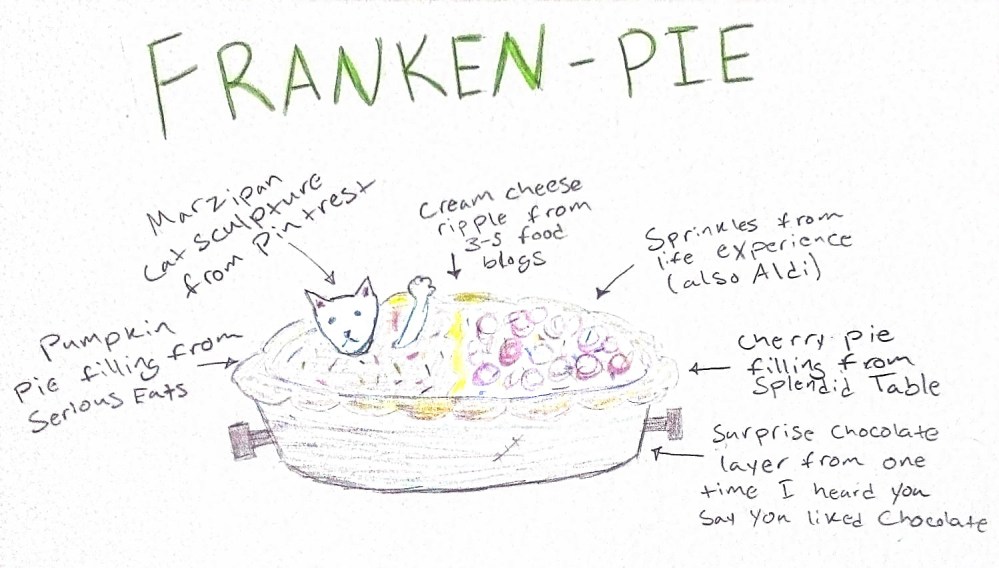 FRANKEN-PIE
Marzipan
cat sculpture
from Pintrest
Cream cheese
ripple from
3-5 food
blogs
Sprinkles from
life experience
(also Aldi)
Pumpkin
pie filling from
Serious Eats
Cherry pie
filling from
Splendid Table
Surprise Chocolate
layer from one
time I heard you
say you liked Chocolate